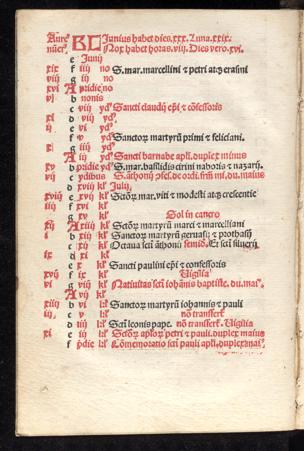 Aure⁹ KL Junius habet dies.xxx. Luna.xxix.
nũer⁹ Nox habet horas.viij. Dies vero.xvi.
e Junij
xix f iiij no S.mar.marcellini ⁊ petri atq̃ erasmi
viij g iij no
xvi A pridie no
v b nonis
c viij yd⁹ Sancti claudij ep̃i ⁊ cõfessoris
xiij d vij yd⁹
ij e vi yd⁹
f v yd⁹ Sanctoꝝ martyrũ primi ⁊ feliciani.
x g iiij yd⁹
A iij yd⁹ Sancti barnabe apl̃i.duplex minus
xviij b pridie yd⁹ S.mar.basilidis cirini naboris ⁊ nazarij.
vij c ydibus S.ãthonij ꝓfes̃.de ordi.frm̃ mi.du.maius
d xviij kl̃ Julij.
xv e xvij kl̃ Sctõꝝ mar.viti ⁊ modesti atq̃ crescentie
iiij f xvi kl̃
g xv kl̃ Sol in cancro
xij A xiiij kl̃ Sctõꝝ martyrũ marci ⁊ marcelliani
i b xiij kl̃ Sanctoꝝ martyrũ geruasij ⁊ prothasij
c xij kl̃ Octaua scti ãthonij semid. Et scti siluerij
ix d xi kl̃
e x kl̃ Sancti paulini ep̃i ⁊ confessoris
xvij f ix kl̃ Uigilia
vi g viij kl̃ Natiuitas scti iohãnis baptiste.du.mai⁹.
A vij kl̃
xiiij b vi kl̃ Sanctoꝝ martyrum iohannis ⁊ pauli
iij c v kl̃ nõ transfert̃.
d iiij kl̃ Scti leonis pape. nõ transfert̃.Uigilia
xi e iij kl̃ Sctõꝝ aploꝝ petri ⁊ pauli.duplex maius
f p̃die kl̃ Cõmemoratio scti pauli apl̃i.duplex mai⁹.